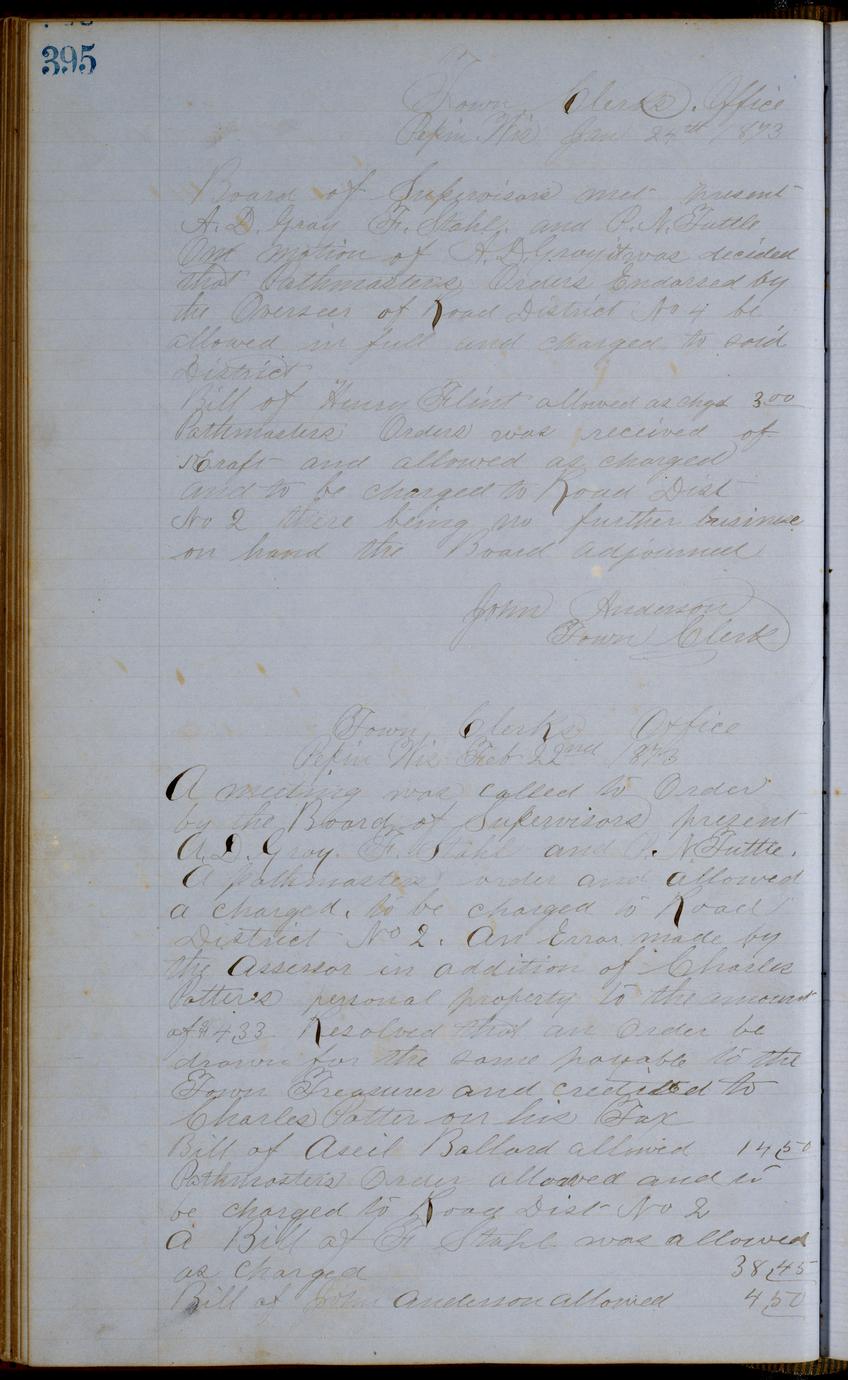 395
Town Clerks Office
Pepin Wis Jan 24th 1873
Board of Supervisors met present
A. D. Gray F. Stahl. and P. N. Tuttle
Ont motion of A. D. Gray it was decided
that Pathmasters Orders Endorsed by
the Overseer of Road District No 4 be
allowed in full and charged to said
District
Bill of Henry Flint allowed as chgd 3 00
Pathmasters Orders was received of
Kraft and allowed as charged
and to be charged to Road Dist
No 2 there being no further business
on hand the Board adjourned
John Anderson
Town Clerk
Town Clerks Office
Pepin Wis Feb 22nd 1873
A meeting was called to Order
by the Board of Supervisors present
A. D. Gray. F. Stahl and P. N Tuttle.
A Pathmasters order and allowed
a charged. to be charged to Road
District No 2. An Error made by
the Assessor in addition of Charles
Potter's personal property to the amount
of $4,33 Resolved that an Order be
drawn for the same payable to the
Town Treasurer and credited to
Charles Potter on his Tax
Bill of Aseil Ballard allowed 14,50
Pathmasters Order allowed and to
be charged to Road Dist No 2
A Bill of F. Stahl was allowed
as charged 38,45
Bill of John Anderson allowed 4,50